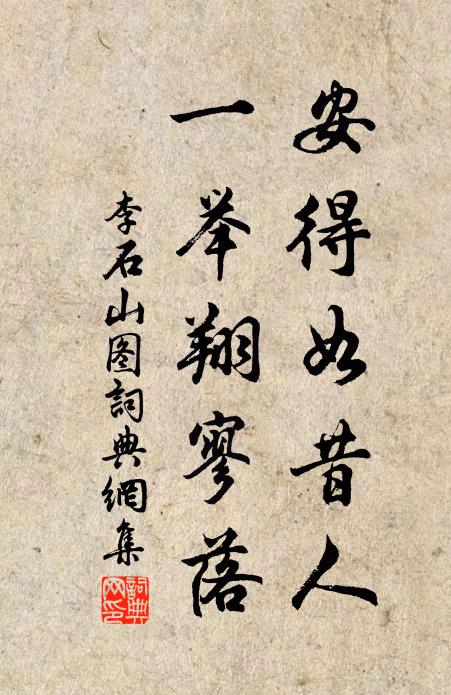 安得如昔人
一举翔寥落
李石山图詞典網集
詞典网印